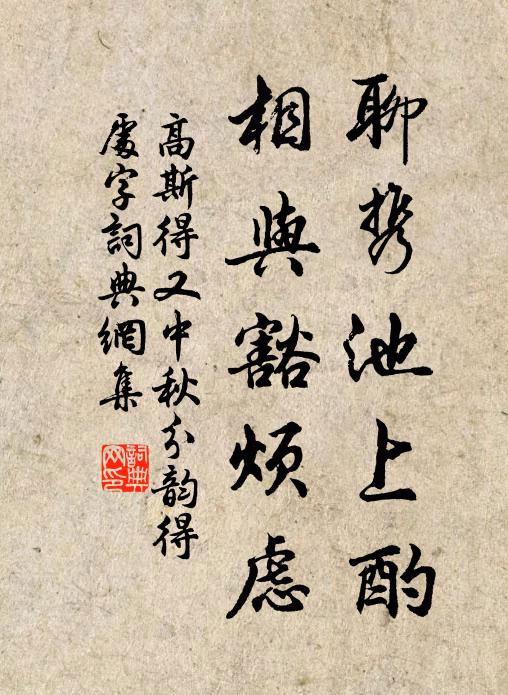 聊携池上酌
相與豁煩慮
高斯得又中秋分韵得
處字詞典網集
詞典网印